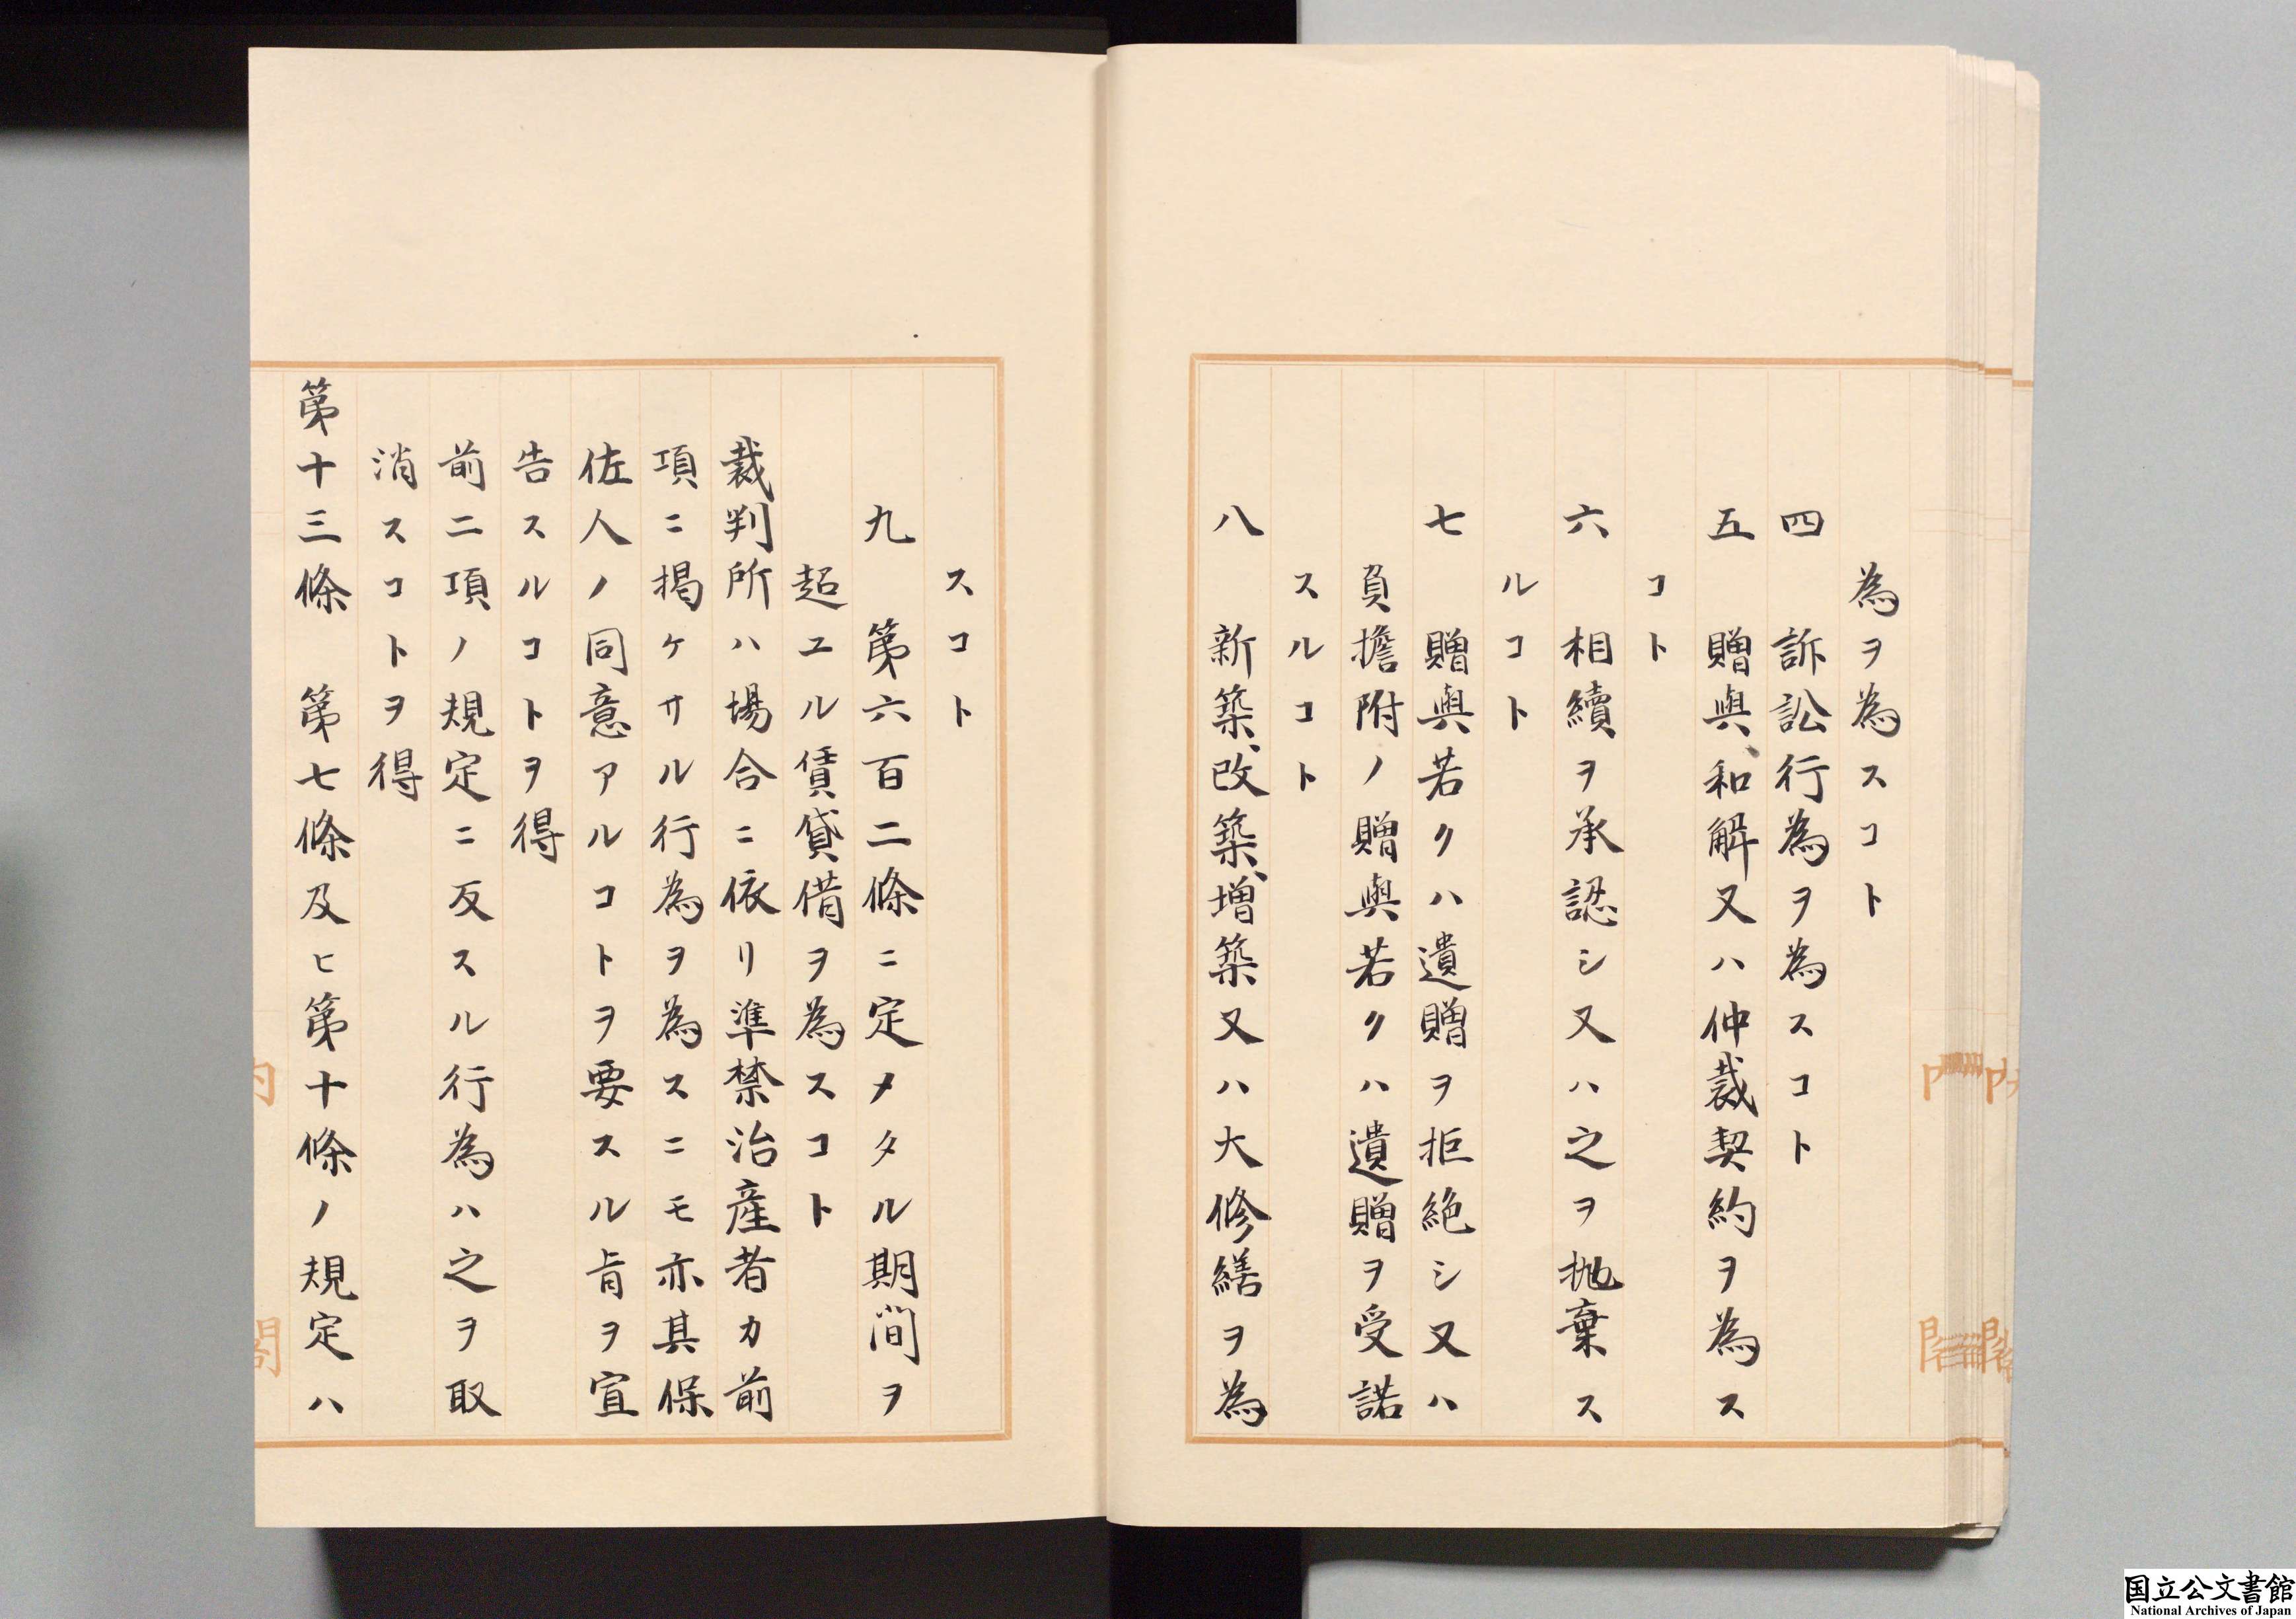 為ヲ為スコト
四　訴訟行為ヲ為スコト
五　贈與、和解又ハ仲裁契約ヲ為ス
コト
六　相續ヲ承認シ又ハ之ヲ抛棄ス
ルコト
七　贈與若クハ遺贈ヲ拒絶シ又ハ
負擔附ノ贈與若クハ遺贈ヲ受諾
スルコト
八　新築、改築、増築又ハ大修繕ヲ為
スコト
九　第六百二條ニ定メタル期間ヲ
超ユル賃貸借ヲ為スコト
裁判所ハ場合ニ依リ準禁治産者カ前
項ニ掲ケサル行為ヲ為スニモ亦其保
佐人ノ同意アルコトヲ要スル旨ヲ宣
告スルコトヲ得
前二項ノ規定ニ反スル行為ハ之ヲ取
消スコトヲ得
第十三條　第七條及ヒ第十條ノ規定ハ
内閣
国立公文書館
National Archives of Japan